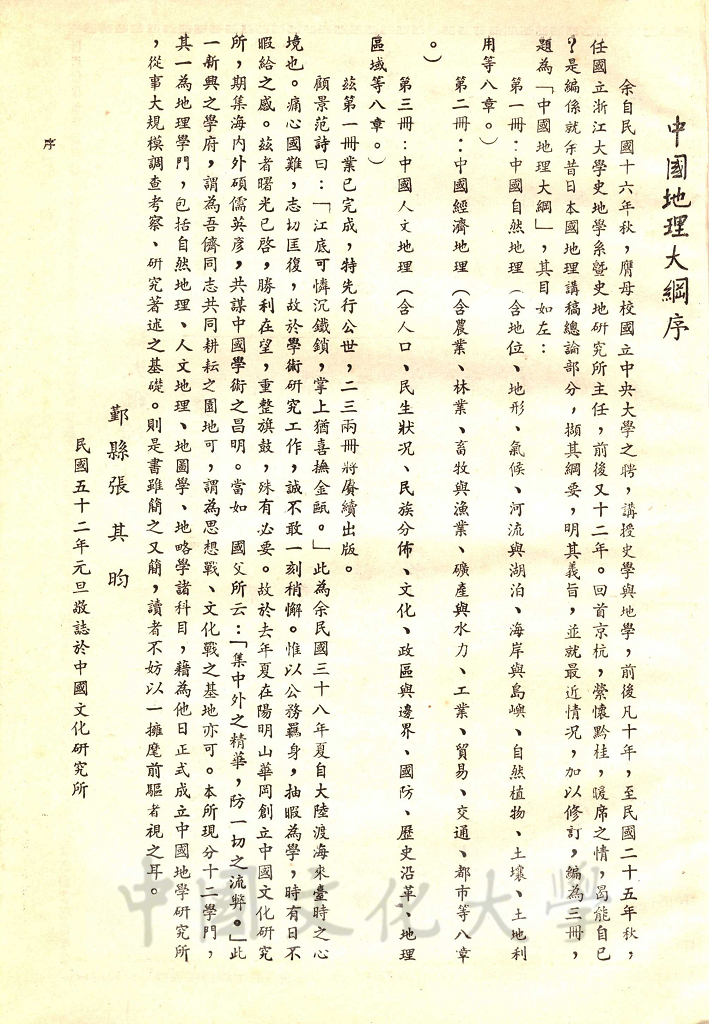 中國地理大綱序
余自民國十六年秋，膺母校國立中央大學之聘，講授史學與地學，前後凡十年，至民國二十五年秋，
任國立浙江大學史地學系暨史地研究所主任，前後又十二年。回首京杭，縈懷黔桂，暖席之情，曷能自已
？是編係就余昔日本國地理講稿總論部分，擷其綱要，明其義旨，並就最近情況，加以修訂，編為三冊，
題為「中國地理大綱」，其目如左：
第一冊：中國自然地理（含地位、地形、氣候、河流與湖泊、海岸與島嶼、自然植物、土壤、土地利
用等八章。）
第二冊：中國經濟地理（含農業、林業、畜牧與漁業、礦產與水力、工業、貿易、交通、都市等八章
。）
第三冊：中國人文地理（含人口、民生狀況、民族分佈、文化、政區與邊界、國防、歷史沿革、地理
區域等八章。）
茲第一冊業已完成，特先行公世，二三兩冊將賡續出版。
顧景范詩曰：「江底可憐沉鐵鎖，掌上猶喜撫金甌。」此為余民國三十八年夏自大陸渡海來臺時之心
境也。痛心國難，志切匡復，故於學術研究工作，誠不敢一刻稍懈。惟以公務羈身，抽暇為學，時有日不
暇給之感。茲者曙光已啓，勝利在望，重整旗鼓，殊有必要。故於去年夏在陽明山華岡創立中國文化研究
所，期集海內外碩儒英彥，共謀中國學術之昌明。當如　國父所云：「集中外之精華，防一切之流弊。」此
一新興之學府，謂為吾儕同志共同耕耘之園地可，謂為思想戰、文化戰之基地亦可。本所現分十二學門，
其一為地理學門，包括自然地理、人文地理、地圖學、地略學諸科目，藉為他日正式成立中國地學研究所
，從事大規模調查考察、研究著述之基礎。則是書雖簡之又簡，讀者不妨以一擁麾前驅者視之耳。
鄞縣張其昀
民國五十二年元旦敬誌於中國文化研究所
序
中國文化大學